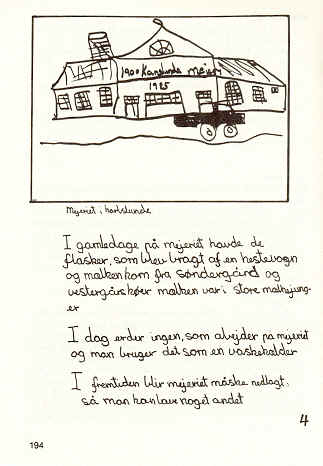 1900 Karslunde Mejeri
1985
Mejeriet i karlslunde
I gamledage på mejeriet havde de
flasker, som blev bragt af en hestevogn
og mælken kom fra søndergård og
vestergårs køer mælken var i store mælkejung-
er
I dag er der ingen, som abejder på mejeriet
og man bruger det som en vaskekælder
I fremtiden blir mejeriet måske nedlagt,
så man kan lave noget andet
4
194